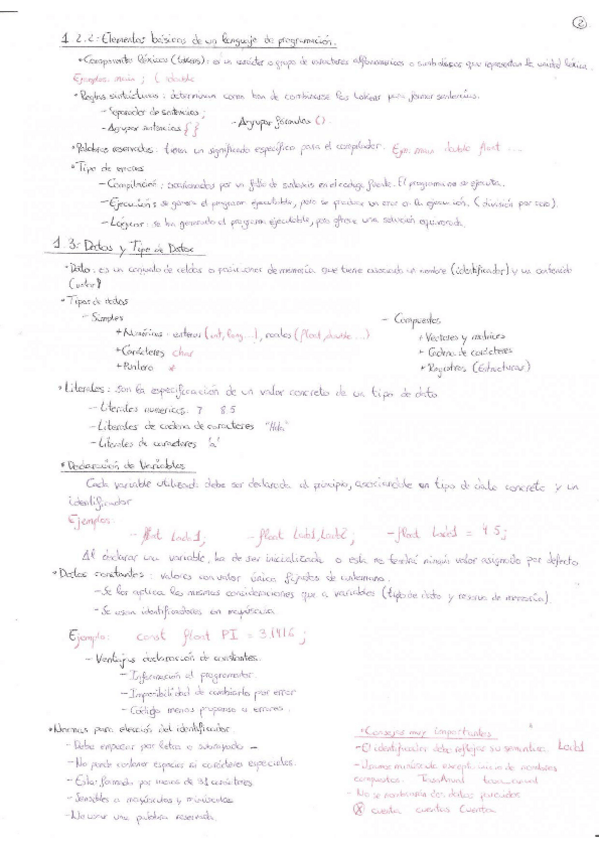 2
1.2.2: Elementos básicos de un lenguaje de programación.
• Componentes léxicos (tokens): es un carácter o grupo de caracteres alfanuméricos o simbólicos que representan la unidad léxica.
Ejemplos: main ; ( double
• Reglas sintácticas: determinan como han de combinarse los tokens para formar sentencias.
- Separador de sentencias ;
- Agrupar fórmulas ().
- Agrupar sentencias { }
• Palabras reservadas: tienen un significado específico para el compilador. Ejm: main double float ...
• Tipo de errores
- Compilación: ocasionados por un fallo de sintaxis en el código fuente. El programa no se ejecuta.
- Ejecución: se genera el programa ejecutable, pero se produce un error en la ejecución. (división por cero).
- Lógicos: se ha generado el programa ejecutable, pero ofrece una solución equivocada.
1.3: Datos y Tipo de Datos
• Dato: es un conjunto de celdas o posiciones de memoria que tiene asociado un nombre (identificador) y un contenido
(valor)
• Tipos de datos
- Simples
- Compuestos
+ Numéricos - enteros (int, long...), reales (float, double ...)
+ Vectores y matrices
+ Carácteres char
+ Cadena de carácteres
+ Puntero *
+ Registros (Estructuras)
• Literales: son la especificación de un valor concreto de un tipo de dato
- Literales numéricos 7 8.5
- Literales de cadena de caracteres "Hola"
- Literales de caracteres 'a'
• Declaración de Variables
Cada variable utilizada debe ser declarada al principio, asociándole un tipo de dato concreto y un
identificador
Ejemplos:
- float Lado1; - float Lado1, Lado2; - float Lado1 = 4.5;
Al declarar una variable, ha de ser inicializada o esta no tendrá ningún valor asignado por defecto
• Datos constantes: valores con valor único fijados de antemano.
- Se les aplica las mismas consideraciones que a variables (tipo de dato y reserva de memoria).
- Se usan identificadores en mayúscula
Ejemplo: const float PI = 3.1416;
- Ventajas declaración de constantes.
- Información al programador.
- Imposibilidad de cambiarlo por error
- Código menos propenso a errores.
• Normas para elección del identificador.
- Debe empezar por letra o subrayado _
- No puede contener espacios ni carácteres especiales.
- Estar formado por menos de 31 carácteres
- Sensibles a mayúsculas y minúsculas
- No usar una palabra reservada.
• Consejos muy importantes
- El identificador debe reflejar su semántica. Lado1
- Usar minúscula excepto inicio de nombres
compuestos.
- No se nombrarán dos datos parecidos
cuenta cuentas Cuenta